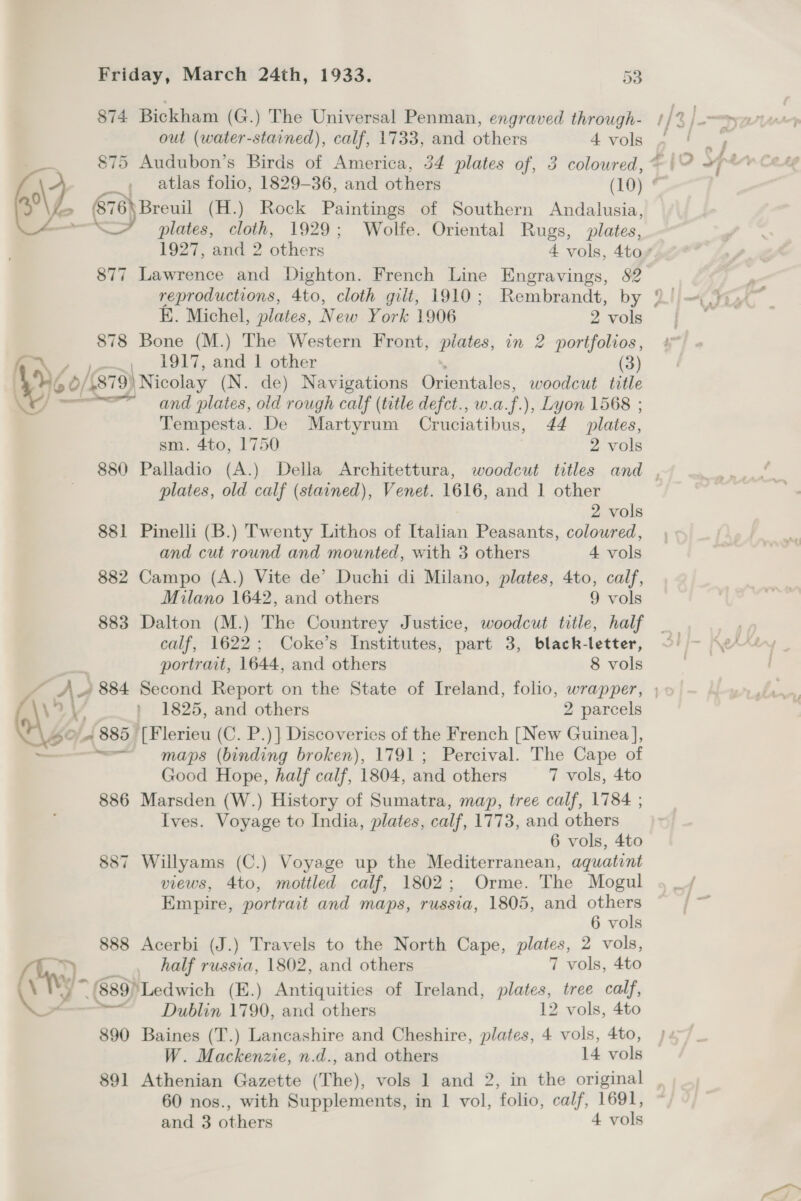 Friday, March 24th, 1933. 53
874 Bickham (G.) The Universal Penman, engraved through-
out (water-stained), calf, 1733, and others 4 vols
875 Audubon's Birds of America, 34 plates of, 3 coloured,
atlas folio, 1829–36, and others (10)
876 Breuil (H.) Rock Paintings of Southern Andalusia,
plates, cloth, 1929; Wolfe. Oriental Rugs, plates,
1927, and 2 others 4 vols, 4to
877 Lawrence and Dighton. French Line Engravings, 82
reproductions, 4to, cloth gilt, 1910; Rembrandt, by
E. Michel, plates, New York 1906 2 vols
878 Bone (M.) The Western Front, plates, in 2 portfolios,
1917, and 1 other (3)
879 Nicolay (N. de) Navigations Orientales, woodcut title
and plates, old rough calf (title defct., w.a.f.), Lyon 1568 ;
Tempesta. De Martyrum Cruciatibus, 44 plates,
sm. 4to, 1750 2 vols
880 Palladio (A.) Della Architettura, woodcut titles and
plates, old calf (stained), Venet. 1616, and 1 other
2 vols
881 Pinelli (B.) Twenty Lithos of Italian Peasants, coloured,
and cut round and mounted, with 3 others 4 vols
882 Campo (A.) Vite de' Duchi di Milano, plates, 4to, calf,
Milano 1642, and others 9 vols
883 Dalton (M.) The Countrey Justice, woodcut title, half
calf, 1622; Coke's Institutes, part 3, black-letter,
portrait, 1644, and others 8 vols
884 Second Report on the State of Ireland, folio, wrapper,
1825, and others 2 parcels
885 [Flerieu (C. P.)] Discoveries of the French [New Guinea],
maps (binding broken), 1791; Percival. The Cape of
Good Hope, half calf, 1804, and others 7 vols, 4to
886 Marsden (W.) History of Sumatra, map, tree calf, 1784 ;
Ives. Voyage to India, plates, calf, 1773, and others
6 vols, 4to
887 Willyams (C.) Voyage up the Mediterranean, aquatint
views, 4to, mottled calf, 1802; Orme. The Mogul
Empire, portrait and maps, russia, 1805, and others
6 vols
888 Acerbi (J.) Travels to the North Cape, plates, 2 vols,
half russia, 1802, and others 7 vols, 4to
889 Ledwich (E.) Antiquities of Ireland, plates, tree calf,
Dublin 1790, and others 12 vols, 4to
890 Baines (T.) Lancashire and Cheshire, plates, 4 vols, 4to,
W. Mackenzie, n.d., and others 14 vols
891 Athenian Gazette (The), vols 1 and 2, in the original
60 nos., with Supplements, in 1 vol, folio, calf, 1691,
and 3 others 4 vols